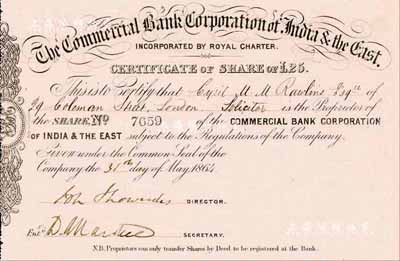 The Commercial Bank Corporation of India & the East.
INCORPORATED BY ROYAL CHARTER.
CERTIFICATE OF SHARE OF £25.
This is to Certify that Cyril M. M. Rawlins Esqre of
29 Coleman Street, London Solicitor is the Proprietor of
the SHARE, No 7659 of the COMMERCIAL BANK CORPORATION
OF INDIA & THE EAST subject to the Regulations of the Company.
Given under the Common Seal of the
Company the 31st day of May, 1864
DIRECTOR.
Entd
SECRETARY.
N.B. Proprietors can only transfer Shares by Deed to be registered at the Bank.